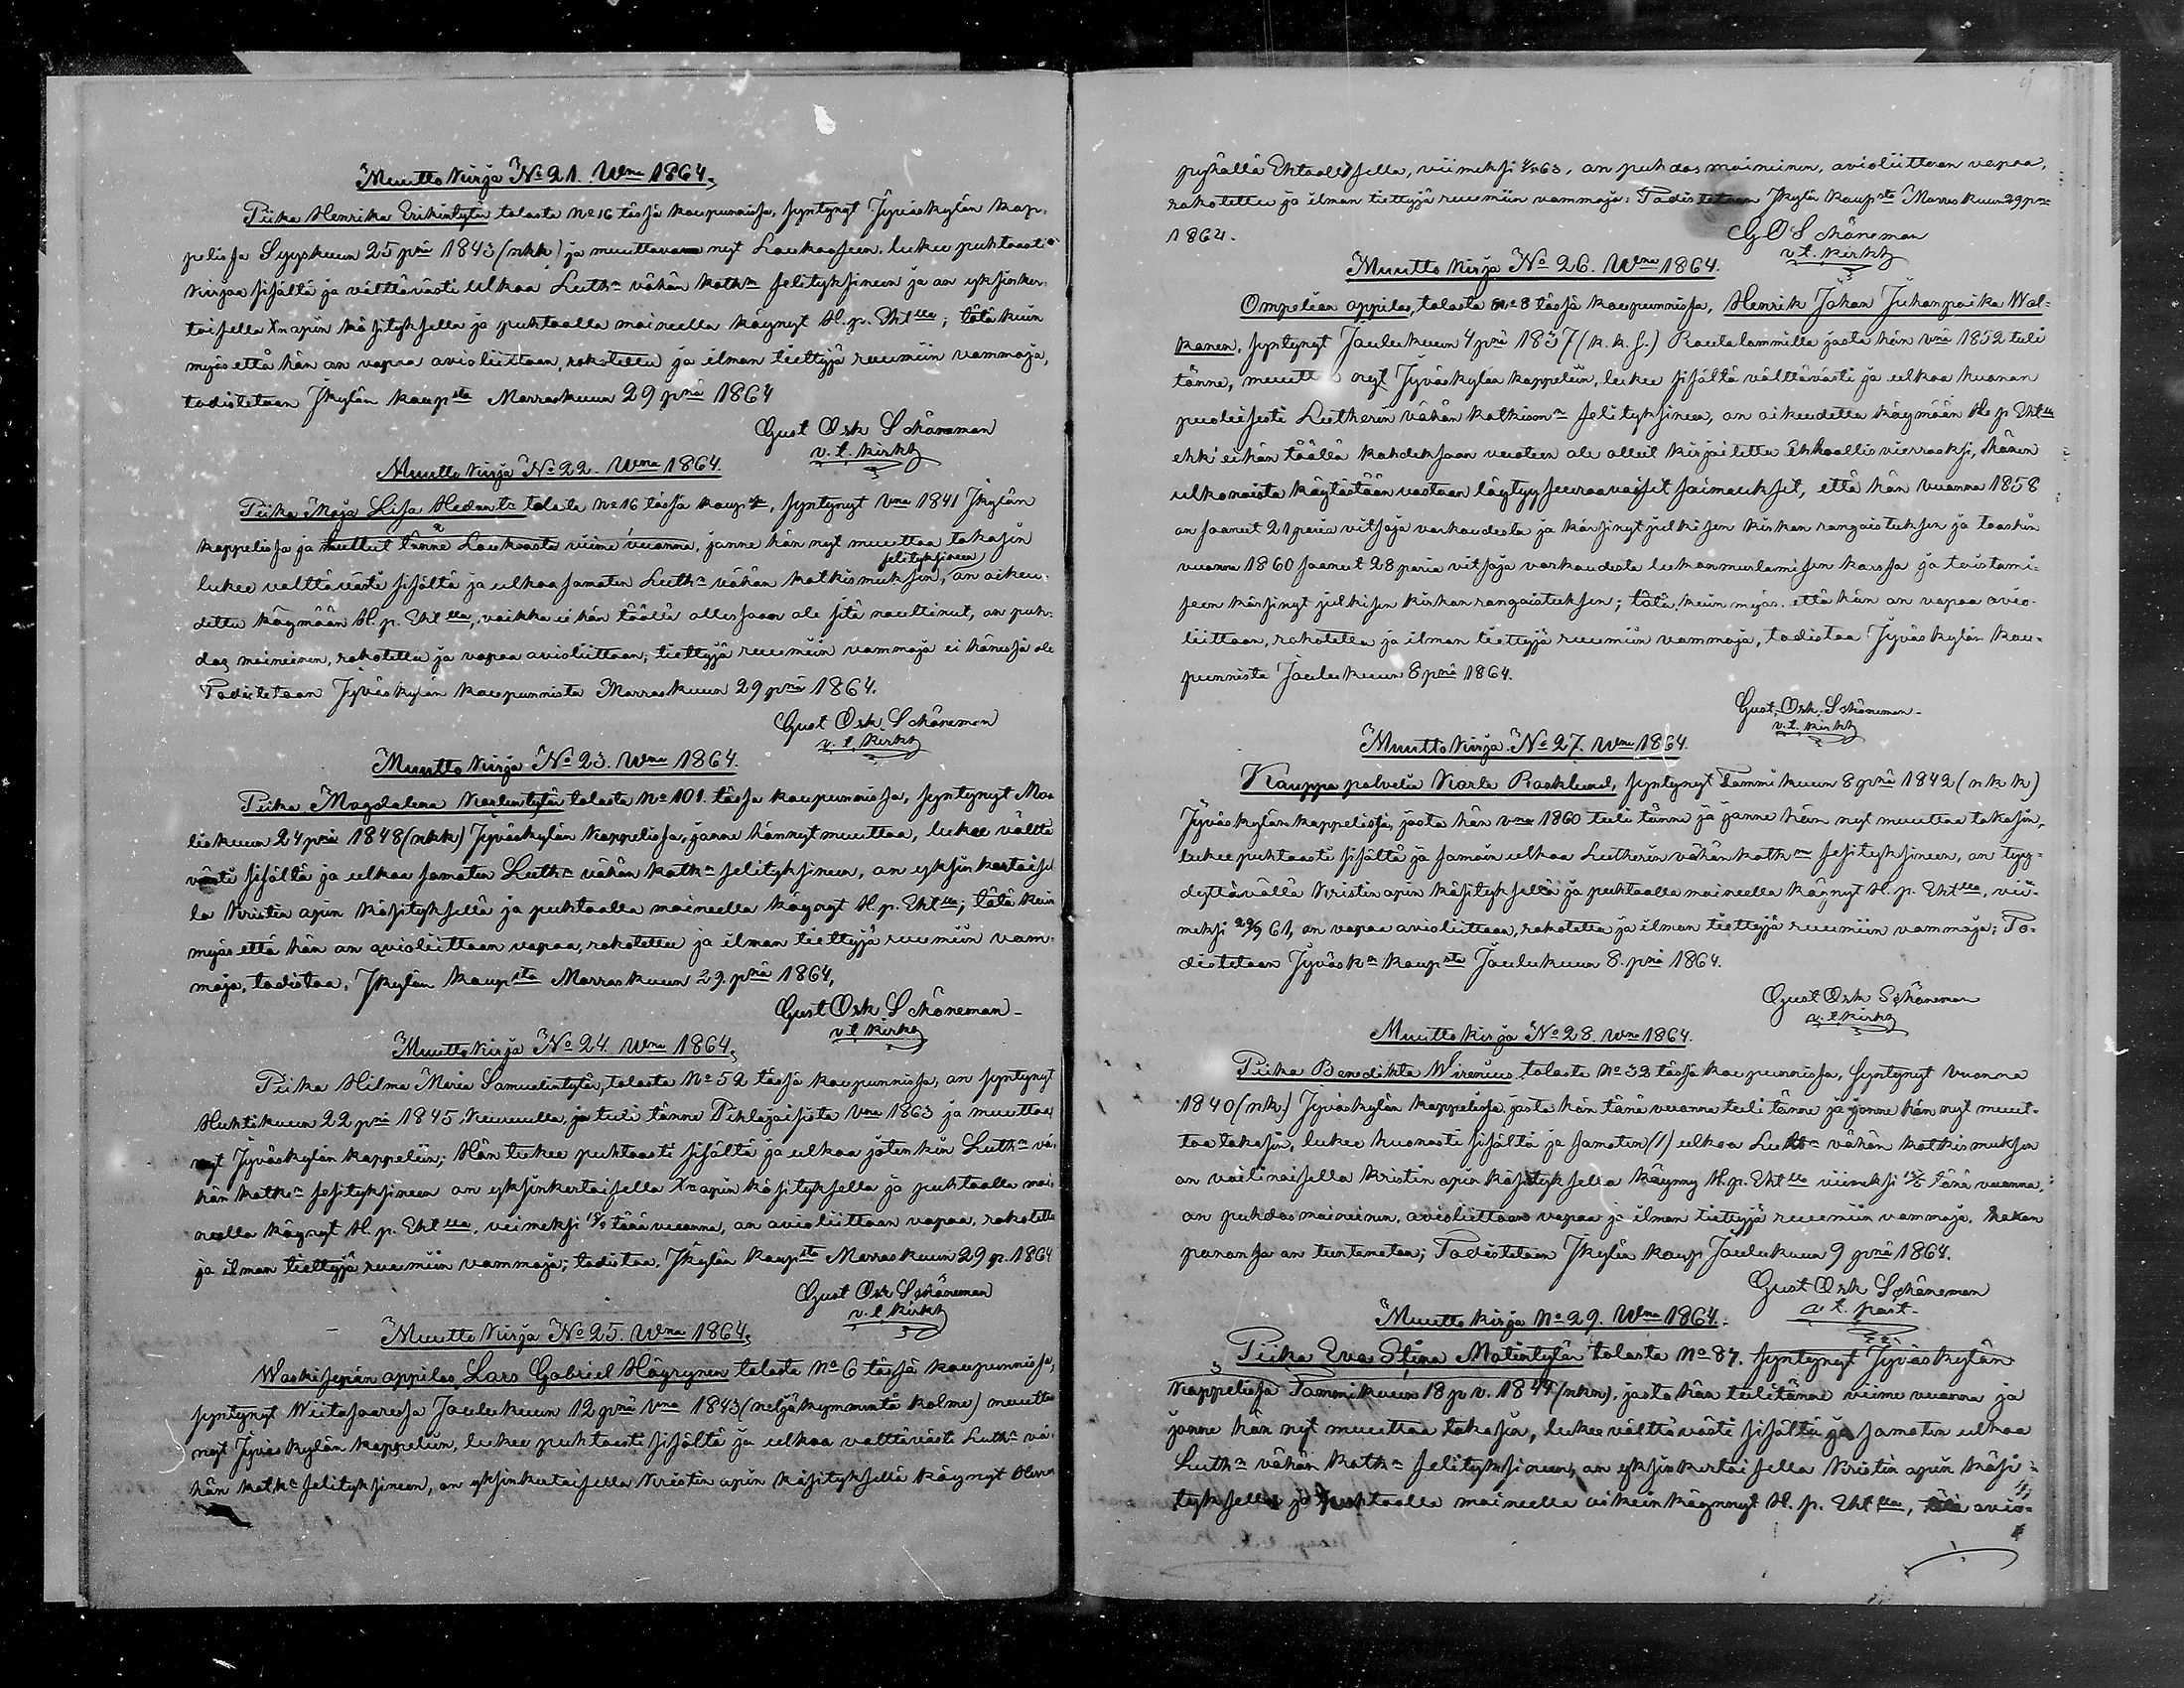 Muutto Kirja No 21. Wna 1864.
Piika Henrika Erikintytär talosta No 16 tässä kaupunnissa, syntynyt Jyväskylän kap-
pelissa Syyskuun 25 pnä 1843 (nkk) ja muuttava nyt Laukaaseen, lukee puhtaasti
kirjaa sisältä ja välttävästi ulkoa Luthn vähän kathn selityksineen ja on yksinker-
taisella Xn opin käsityksellä ja puhtaalla maineella käynyt H. p. Ehtlla; tätä kuin
myös että hän on vapaa avioliittoon, rokotettu ja ilman tiettyjä ruumiin vammoja,
todistetaan Jkylän kaupsta Marraskuun 29 pnä 1864
Gust Osk Schöneman
v. t. kirkh
Muutto Kirja No 22. Wna 1864.
Piika Maja Lisa Hedanta talosta No 16 tässä kaup, syntynyt Vna 1841 Jkylän
kappelissa ja muuttut tänne Laukaasta viime vuonna, jonne hän nyt muuttaa takasin
selityksineen
lukee välttävästi sisältä ja ulkoa samaten Luthn vähän katkismuksen, on oikeu-
dettu käymään H. p. Ehtlla, vaikka ei hän täällä ollessaan ole sitä nauttinut, on puh-
das maineinen, rokotettu ja vapaa avioliittoon; tiettyjä ruumiin vammoja ei hänessä ole
Todistetaan Jyväskylän kaupunnista Marraskuun 29 pnä 1864.
Gust Osk Schöneman
v. t. kirkh
Muutto Kirja No 23. Wna 1864.
Piika Magdalena Karlentytär talosta No 101. tässä kaupunnissa, syntynyt Maa
liskuun 24 pnä 1848 (nkk) Jyväskylän Kappelissa, jonne hän nyt muuttaa, lukee vältti
västi sisältä ja ulkoa samaten Luthn vähän kathn selityksineen, on yksinkertaisel
la Kristin opin käsityksellä ja puhtaalla maineella käynyt H. p. Ehtlla; tätä kuin
myös että hän on avioliittoon vapaa, rokotettu ja ilman tiettyjä ruumiin vam-
moja, todistaa, Jkylän kaupsta Marraskuun 29. pnä 1864,
Gust Osk Schöneman
v t kirkh
Muutto Kirja No 24 Wna 1864.
Piika Hilma Maria Samuelintytär, talosta No 52 tässä kaupunnissa, on syntynyt
Huhtikuun 22 pnä 1845 Keuruulla, ja tuli tänne Pihlajaisista Vna 1863 ja muuttaa
nyt Jyväskylän kappeliin; Hän lukee puhtaasti sisältä ja ulkoa jotenkin Luthn vä-
hän kathn selityksineen on yksinkertaisella Xn opin käsityksellä ja puhtaalla mai-
neella käynyt H. p. Ehtlla, viimeksi tänä vuonna, on avioliittoon vapaa, rokotettu
ja ilman tiettyjä ruumiin vammoja; todistaa. Jkylän kaupsta Marraskuun 29 p. 1864
Gust Osk Schöneman
v. t. kirkh
Muutto Kirja No 25. Wna 1864.
Waskisepän oppilas, Lars Gabriel Häyrynen talosta No 6 tässä kaupunnissa,
syntynyt Wiitasaaressa Jouluskuun 12 pnä Vna 1843 (neljäkymmentä kolme) muuttaa
nyt Jyväskylän kappeliin, lukee puhtaasti sisältä ja ulkoa välttävästi Luthn vä-
hän kathn selityksineen, on yksinkertaisella Kristin opin käsityksellä käynyt Herran
pyhällä Ehtoollisella, viimeksi 63, on puhdas maineinen, avioliittoon vapaa,
rokotettu ja ilman tiettyjä ruumiin vammoja; Todistetaan Jkylän kaupsta Marraskuun 29 pnä
1864.
G O Schöneman
v. t. kirkh
Muutto Kirja No 26. Wna 1864.
Ompelian oppilas, talosta No 8 tässä kaupunnissa, Henrik Johan Juhanpoika Wal-
konen, syntynyt Joulukuun 4 pnä 1837 (k. k. s.) Rautalammilla josta hän vnä 1852 tuli
tänne, muuttaa nyt Jyväskylän kappeliin, lukee sisältä välttävästi ja ulkoa huonon
puolisesti Lutherin vähän katkismn selityksineen, on oikeudettu käymään H. p Ehtlla
ehk' ei hän täällä kahdeksaan vuoteen ole ollut kirjoitettu ehtoollis vierraaksi, hänen
ulkonaista käytöstään vastaan löytyy seuraavaiset saimaukset, että hän vuonna 1858
on saanut 21 paria vitsoja varkaudesta ja kärsinyt julkisen kirkon rangaistuksen ja taaskin
vuonna 1860 saanut 28 paria vitsoja varkaudesta lukonmurtamisen kanssa ja toistami-
seen kärsinyt julkisen kirkon rangaistuksen; tätä, kuin myös, että hän on vapaa avio-
liittoon, rokotettu ja ilman tiettyjä ruumiin vammoja, todistaa Jyväskylän kau-
punnista Joulukuun 8 pnä 1864.
Gust. Osk. Schöneman
v. t. kirkh
Muutto Kirja No 27. Wna 1864.
Kauppa palvelia Karle Rosklund, syntynyt Tammikuun 8 pnä 1842 (n k k)
Jyväskylän kappelissa, josta hän vna 1860 tuli tänne ja jonne hän nyt muuttaa takasin,
lukee puhtaasti sisältä ja samoin ulkoa Lutherin vähän kathn selityksineen, on tyy-
dyttävällä Kristin opin käsityksellä ja puhtaalla maineella käynyt H. p. Ehtlla, vii-
meksi 61, on vapaa avioliittoon, rokotettu ja ilman tiettyjä ruumiin vammoja; To-
distetaan Jyväskn kaupsta Joulukuun 8. pnä 1864.
Gust Osk Schöneman
v. t. kirkh
Muutto kirja No 28. Wna 1864.
Piika Benedikta Wirenius talosta No 32 tässä kaupunnissa, Syntynyt Vuonna
1840 (nk) Jyväskylän kappelissa josta hän tänä vuonna tuli tänne ja jonne hän nyt muut-
taa takasin, lukee huonosti sisältä ja samaten (1) ulkoa Luthn vähän katkismuksen
on vaillinaisella kristin opin käsityksellä käynny H. p. Ehtlla viimeksi tänä vuonna,
on puhdas maineinen, avioliittoon vapaa ja ilman tiettyjä ruumiin vammoja, Rokon
panonsa on tuntematon; Todistetaan Jkylän kaup Joulukuun 9 pnä 1864.
Gust Osk Schöneman
v t. past.
Muutto kirja No 29. Wna 1864.
Piika Eva Stina Matintytär talosta No 87. syntynyt Jyväskylän
Kappelissa Tammikuun 18 p v. 1844 (nkn), josta hän tuli tänne viime vuonna ja
jonne hän nyt muuttaa takasin, lukee välttävästi sisältä ja samaten ulkoa
Luthn vähän kathn selityksineen, on yksinkertaisella Kristin opin käsi-
tyksellä ja puhtaalla maineella oikein käynnyt H. p. Ehtlla, avio-